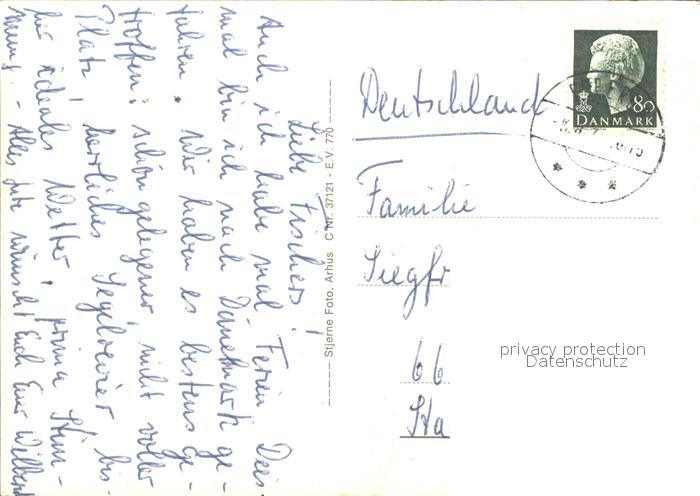 Liebe Fischers!
Auch ich habe mal Ferien. Dies-
mal bin ich nach Dänemark ge-
fahren. Wir haben es bestens ge-
troffen: schön gelegener, nicht voller
Platz, herrliches Segelrevier, bis-
her ideales Wetter, prima Stim-
mung. - Alles Gute wünscht Euch Euer
Stjerne Foto, Arhus C Nr. 37121 - E.V. 770
80
DANMARK
Deutschland
Familie
Siegfr
66
Ha
privacy protection
Datenschutz